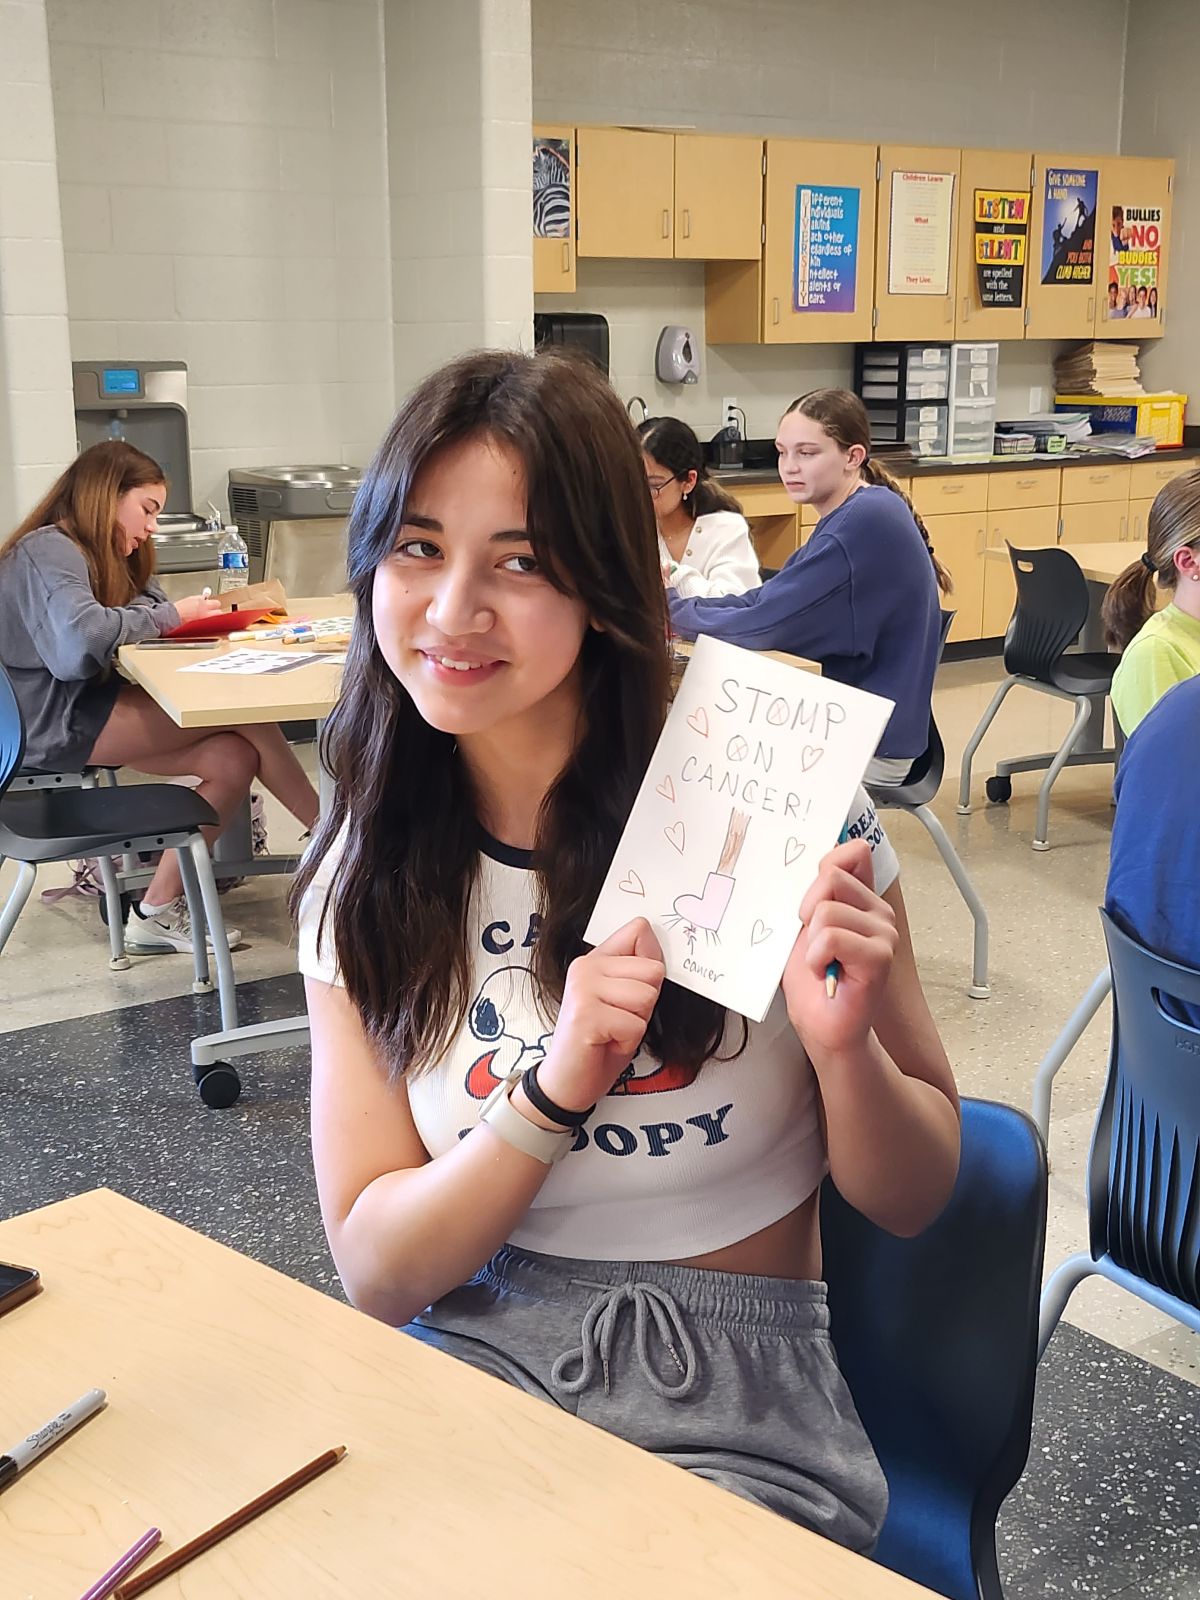 Different
Individuals
Valuing
Each other
Regardless of
Skin
Intellect
Talents or
Years.
Children Learn
What
They Live.
LISTEN
and
SILENT
are spelled
with the
same letters.
GIVE SOMEONE
A HAND
AND
YOU BOTH
CLIMB HIGHER
BULLIES
NO
BUDDIES
YES!
STOMP
ON
CANCER!
cancer
BEA
CO
CA
SNOOPY
Sharpie